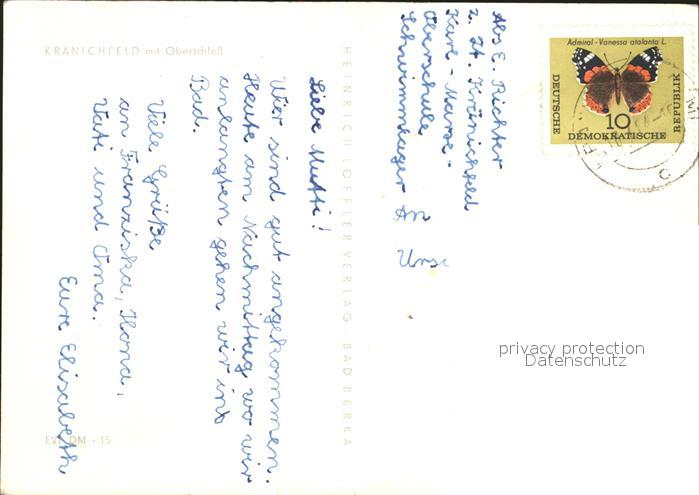 KRANICHFELD mit Oberschloß
Liebe Mutti!
Wir sind gut angekommen.
Heute am Nachmittag wo wir
anlangten gehen wir ins
Bad.
Viele Grüße
an Franziska, Ilona,
Vati und Oma.
Eure Elisabeth
EVP DM -.15
HEINRICH LÖFFLER VERLAG · BAD BERKA
Abs E. Richter
z. Zt. Kranichfeld
Karl-Marx-
Oberschule
Schwimmlager
An
Admiral - Vanessa atalanta L.
DEUTSCHE
DEMOKRATISCHE
REPUBLIK
10
privacy protection
Datenschutz